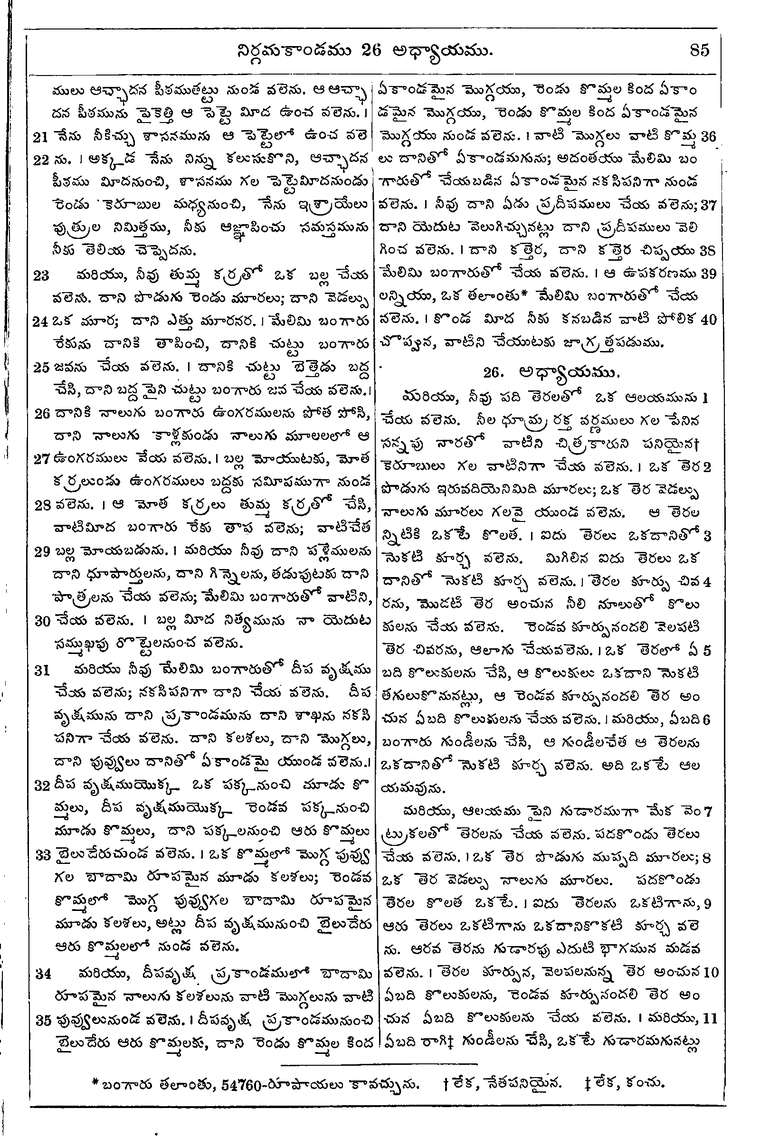 నిర్గమకాండము 26 అధ్యాయము. 85
ములు ఆచ్ఛాదన పీఠముతట్టు నుండ వలెను. ఆ ఆచ్ఛా
దన పీఠమును పైకెత్తి ఆ పెట్టె మీద ఉంచ వలెను. ।
21 నేను నీకిచ్చు శాసనమును ఆ పెట్టెలో ఉంచ వలె
22 ను. । అక్కడ నేను నిన్ను కలుసుకొని, ఆచ్ఛాదన
పీఠము మీదనుంచి, శాసనము గల పెట్టెమీదనుండు
రెండు కెరూబుల మధ్యనుంచి, నేను ఇశ్రాయేలు
పుత్రుల నిమిత్తము, నీకు ఆజ్ఞాపించు సమస్తమును
నీకు తెలియ చెప్పెదను.
23 మరియు, నీవు తుమ్మ కర్రతో ఒక బల్ల చేయ
వలెను. దాని పొడుగు రెండు మూరలు; దాని వెడల్పు
24 ఒక మూర; దాని ఎత్తు మూరనర. । మేలిమి బంగారు
రేకును దానికి తాపించి, దానికి చుట్టు బంగారు
25 జవను చేయ వలెను. । దానికి చుట్టు బెత్తెడు బద్ద
చేసి, దాని బద్ద పైని చుట్టు బంగారు జవ చేయ వలెను. ।
26 దానికి నాలుగు బంగారు ఉంగరములను పోత పోసి,
దాని నాలుగు కాళ్లకుండు నాలుగు మూలలలో ఆ
27 ఉంగరములు వేయ వలెను. । బల్ల మోయుటకు, మోత
కర్రలుండు ఉంగరములు బద్దకు సమీపముగా నుండ
28 వలెను. । ఆ మోత కర్రలు తుమ్మ కర్రతో చేసి,
వాటిమీద బంగారు రేకు తాప వలెను; వాటిచేత
29 బల్ల మోయబడును. । మరియు నీవు దాని పళ్లెములను
దాని ధూపార్తులను, దాని గిన్నెలను, తడుపుటకు దాని
పాత్రలను చేయ వలెను; మేలిమి బంగారుతో వాటిని,
30 చేయ వలెను. । బల్ల మీద నిత్యమును నా యెదుట
సమ్ముఖపు రొట్టెలనుంచ వలెను.
31 మరియు నీవు మేలిమి బంగారుతో దీప వృక్షము
చేయ వలెను; నకసిపనిగా దాని చేయ వలెను. దీప
వృక్షమును దాని ప్రకాండమును దాని శాఖను నకసి
పనిగా చేయ వలెను. దాని కలశలు, దాని మొగ్గలు,
దాని పువ్వులు దానితో ఏకాండమై యుండ వలెను. ।
32 దీప వృక్షముయొక్క ఒక పక్కనుంచి మూడు కొ
మ్మలు, దీప వృక్షముయొక్క రెండవ పక్కనుంచి
మూడు కొమ్మలు, దాని పక్కలనుంచి ఆరు కొమ్మలు
33 బైలుదేరుచుండ వలెను. । ఒక కొమ్మలో మొగ్గ పువ్వు
గల బాదామి రూపమైన మూడు కలశలు; రెండవ
కొమ్మలో మొగ్గ పువ్వుగల బాదామి రూపమైన
మూడు కలశలు, అట్లు దీప వృక్షమునుంచి బైలుదేరు
ఆరు కొమ్మలలో నుండ వలెను.
34 మరియు, దీపవృక్ష ప్రకాండములో బాదామి
రూపమైన నాలుగు కలశలును వాటి మొగ్గలును వాటి
35 పువ్వులునుండ వలెను. । దీపవృక్ష ప్రకాండమునుంచి
బైలుదేరు ఆరు కొమ్మలకు, దాని రెండు కొమ్మల కింద
ఏకాండమైన మొగ్గయు, రెండు కొమ్మల కింద ఏకాం
డమైన మొగ్గయు, రెండు కొమ్మల కింద ఏకాండమైన
మొగ్గయు నుండ వలెను. । వాటి మొగ్గలు వాటి కొమ్మ 36
లు దానితో ఏకాండమగును; అదంతయు మేలిమి బం
గారుతో చేయబడిన ఏకాండమైన నకసిపనిగా నుండ
వలెను. । నీవు దాని ఏడు ప్రదీపములు చేయ వలెను; 37
దాని యెదుట వెలుగిచ్చునట్లు దాని ప్రదీపములు వెలి
గించ వలెను. । దాని కత్తెర, దాని కత్తెర చిప్పయు 38
మేలిమి బంగారుతో చేయ వలెను. । ఆ ఉపకరణము 39
లన్నియు, ఒక తలాంతు* మేలిమి బంగారుతో చేయ
వలెను. । కొండ మీద నీకు కనబడిన వాటి పోలిక 40
చొప్పున, వాటిని చేయుటకు జాగ్రత్తపడుము.
26. అధ్యాయము.
మరియు, నీవు పది తెరలతో ఒక ఆలయమును 1
చేయ వలెను. నీల ధూమ్ర రక్త వర్ణములు గల పేనిన
సన్నపు నారతో వాటిని చిత్రకారుని పనియైన†
కెరూబులు గల వాటినిగా చేయ వలెను. । ఒక తెర 2
పొడుగు ఇరువదియెనిమిది మూరలు; ఒక తెర వెడల్పు
నాలుగు మూరలు గలవై యుండ వలెను. ఆ తెరల
న్నిటికి ఒకటే కొలత. । ఐదు తెరలు ఒకదానితో 3
నొకటి కూర్చ వలెను. మిగిలిన ఐదు తెరలు ఒక
దానితో నొకటి కూర్చ వలెను. । తెరల కూర్పు చివ 4
రను, మొదటి తెర అంచున నీలి నూలుతో కొలు
కులను చేయ వలెను. రెండవ కూర్పునందలి వెలపటి
తెర చివరను, ఆలాగు చేయవలెను. । ఒక తెరలో ఏ 5
బది కొలుకులను చేసి, ఆ కొలుకులు ఒకదాని నొకటి
తగులుకొనునట్లు, ఆ రెండవ కూర్పునందలి తెర అం
చున ఏబది కొలుకులను చేయ వలెను. । మరియు, ఏబది 6
బంగారు గుండీలను చేసి, ఆ గుండీలచేత ఆ తెరలను
ఒకదానితో నొకటి కూర్చ వలెను. అది ఒకటే ఆల
యమవును.
మరియు, ఆలయము పైని గుడారముగా మేక వెం 7
ట్రుకలతో తెరలను చేయ వలెను. పదకొండు తెరలు
చేయ వలెను. । ఒక తెర పొడుగు ముప్పది మూరలు; 8
ఒక తెర వెడల్పు నాలుగు మూరలు. పదకొండు
తెరల కొలత ఒకటే. । ఐదు తెరలను ఒకటిగాను, 9
ఆరు తెరలు ఒకటిగాను ఒకదానికొకటి కూర్చ వలె
ను. ఆరవ తెరను గుడారపు ఎదుటి భాగమున మడవ
వలెను. । తెరల కూర్పున, వెలపలనున్న తెర అంచున 10
ఏబది కొలుకులను, రెండవ కూర్పునందలి తెర అం
చున ఏబది కొలుకులను చేయ వలెను. । మరియు, 11
ఏబది రాగి‡ గుండీలను చేసి, ఒకటే గుడారమగునట్లు
* బంగారు తలాంతు, 54760-రూపాయలు కావచ్చును. † లేక, నేతపనియైన. ‡ లేక, కంచు.